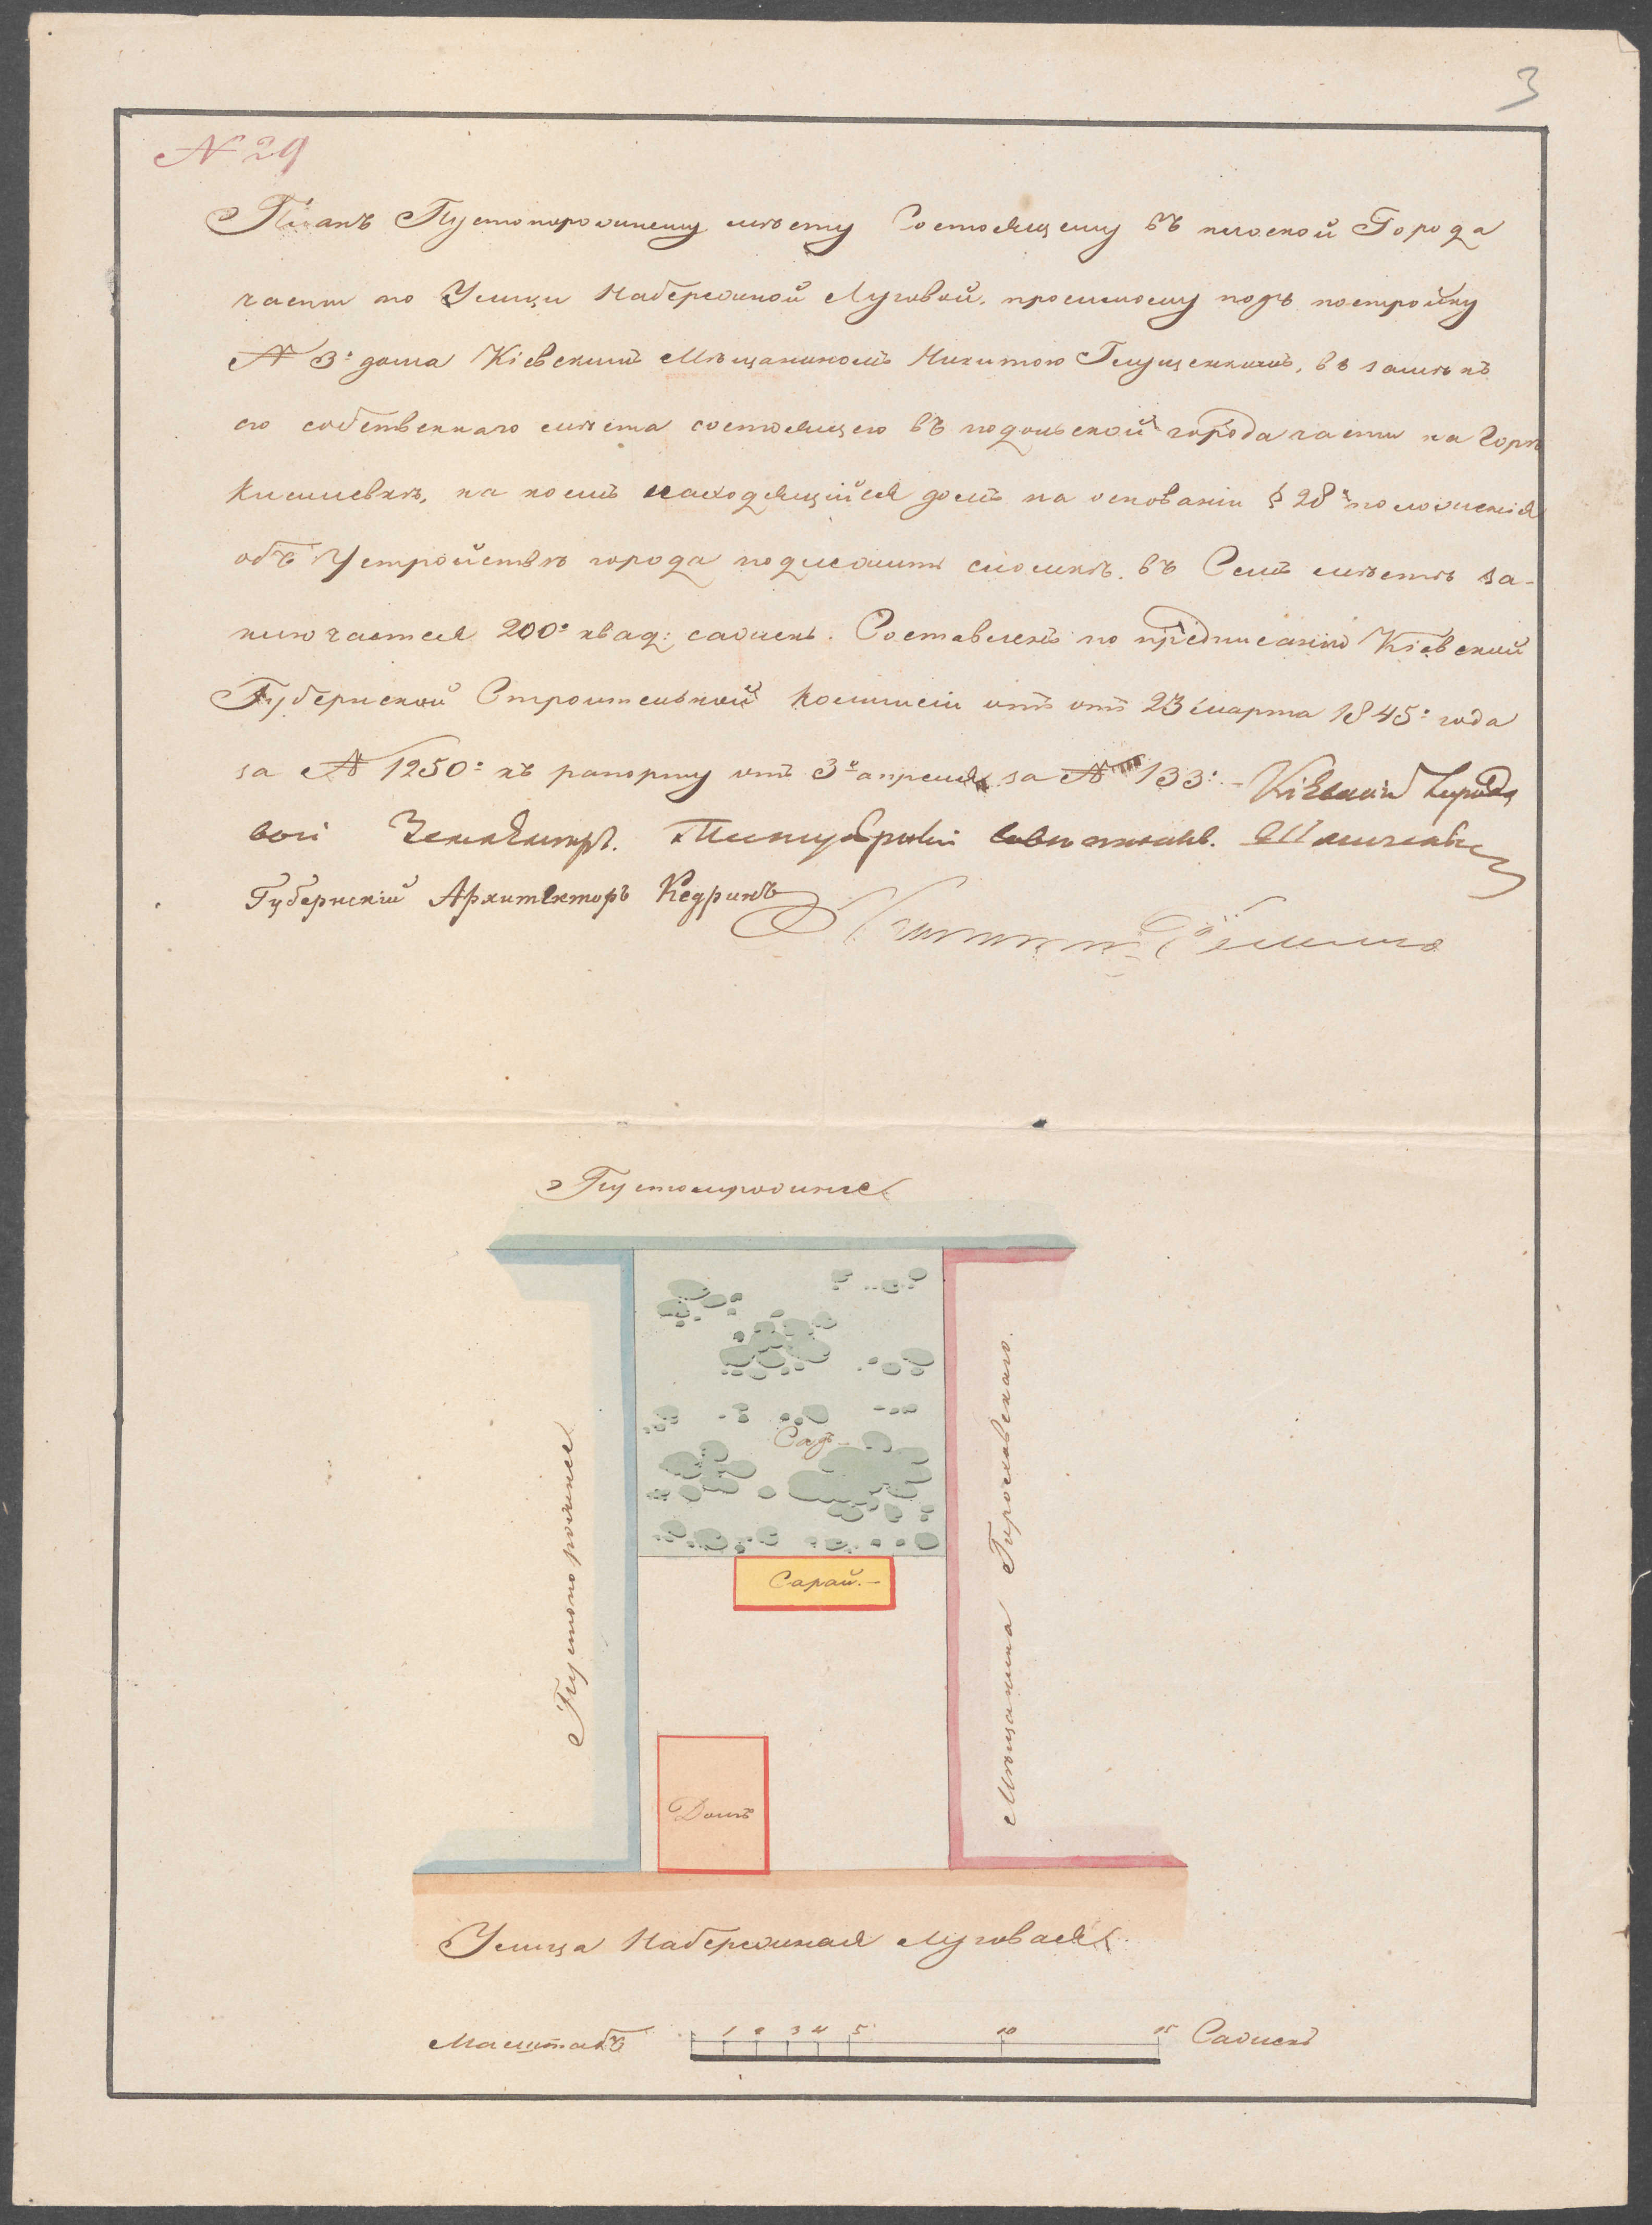 3
N 29
Планъ Пустопорожнему мѣсту Состоящему въ плоской Города
части по Улицы Набережной Луговой, просимому подъ постройку
N 3: дома Кіевскимъ Мѣщаниномъ Никитою Глущенкомъ, въ замѣнъ
его собственнаго мѣста состоящего въ подольской города части на Горѣ
Киселевкѣ, на коемъ находящийся домъ на основаніи § 28 положенія
объ Устройствѣ города подлежитъ сломкѣ. въ Семъ мѣстѣ за-
ключается 200: квад: сажень. Составленъ по предписанію Кіевской
Губернской Строительной Коммисіи отъ отъ 23 марта 1845: года
за N 1250: къ рапорту отъ 3: апреля за N 133: Кіевскій Городо
вой Землемѣръ. Титулярный Совѣтникъ.
Губернскій Архитекторъ
Пустопорожнее
Пустопорожнее
Садъ
Сарай.
Мѣщанина
Домъ
Улица Набережная Луговая
Масштабъ 1 2 3 4 5 10 15 Сажень